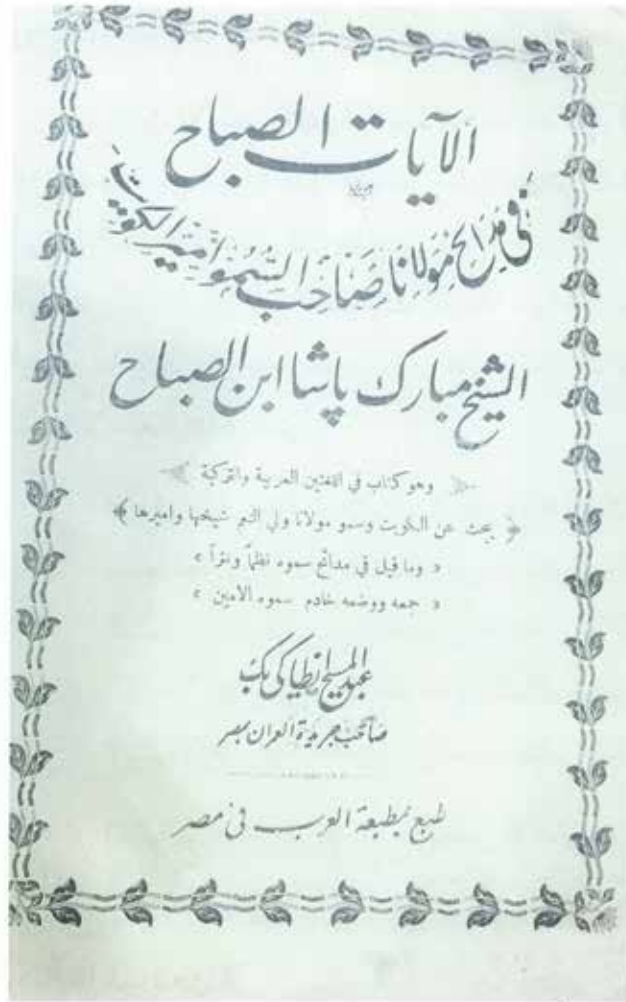 الآيات الصباح
في مدائح مولانا صاحب السمو امير الكويت
الشيخ مبارك پاشا ابن الصباح
وهو كتاب في اللغتين العربية والتركية
﴿ يبحث عن الكويت وسمو مولانا ولي النعم شيخها واميرها ﴾
« وما قيل في مدائح سموه نظماً ونثراً »
« جمعه ووضعه خادم سموه الامين »
عبد المسيح انطاكي بك
صاحب جريدة العمران بمصر
طبع بمطبعة العرب في مصر